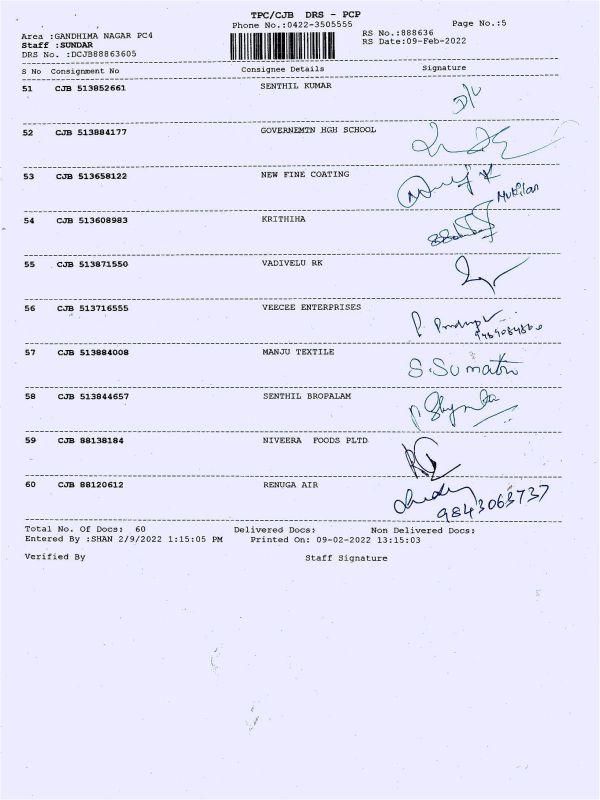 TPC/CJB DRS - PCP
Phone No.:0422-3505555
Page No.:5
Area :GANDHIMA NAGAR PC4
RS No.:888636
Staff :SUNDAR
RS Date:09-Feb-2022
DRS No. :DCJB88863605
S No Consignment No Consignee Details Signature
51 CJB 513852661 SENTHIL KUMAR
52 CJB 513884177 GOVERNEMTN HGH SCHOOL
53 CJB 513658122 NEW FINE COATING
Mukilan
54 CJB 513608983 KRITHIHA
55 CJB 513871550 VADIVELU RK
56 CJB 513716555 VEECEE ENTERPRISES
57 CJB 513884008 MANJU TEXTILE S.Sumathi
58 CJB 513844657 SENTHIL BROPALAM
59 CJB 88138184 NIVEERA FOODS PLTD
60 CJB 88120612 RENUGA AIR
9843063737
Total No. Of Docs: 60 Delivered Docs: Non Delivered Docs:
Entered By :SHAN 2/9/2022 1:15:05 PM Printed On: 09-02-2022 13:15:03
Verified By Staff Signature